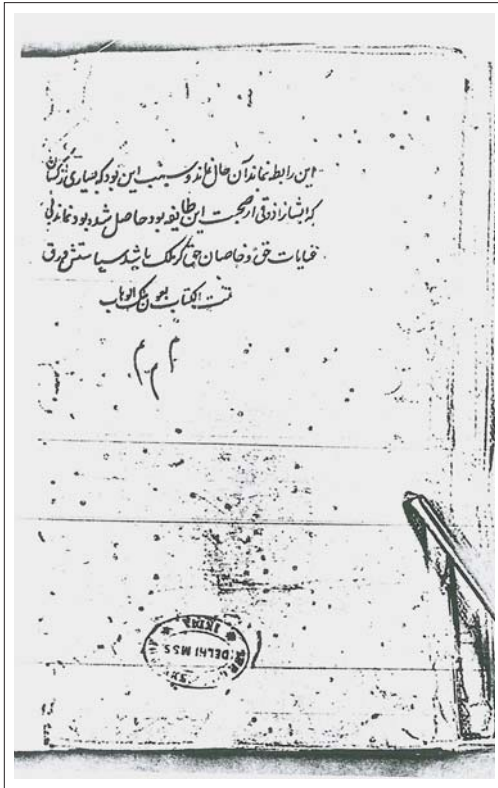 این رابطه نماند آن حال نماند و سبب این بود که بسیاری از کسان
که ایشانرا ذوقی از صحبت این طایفه بود حاصل شده بود نماند بی
عنایات حق و خاصان حق گر ملک باشد سیاهستش ورق
تمت الکتاب بعون ملک الوهاب
م م م
DELHI MSS